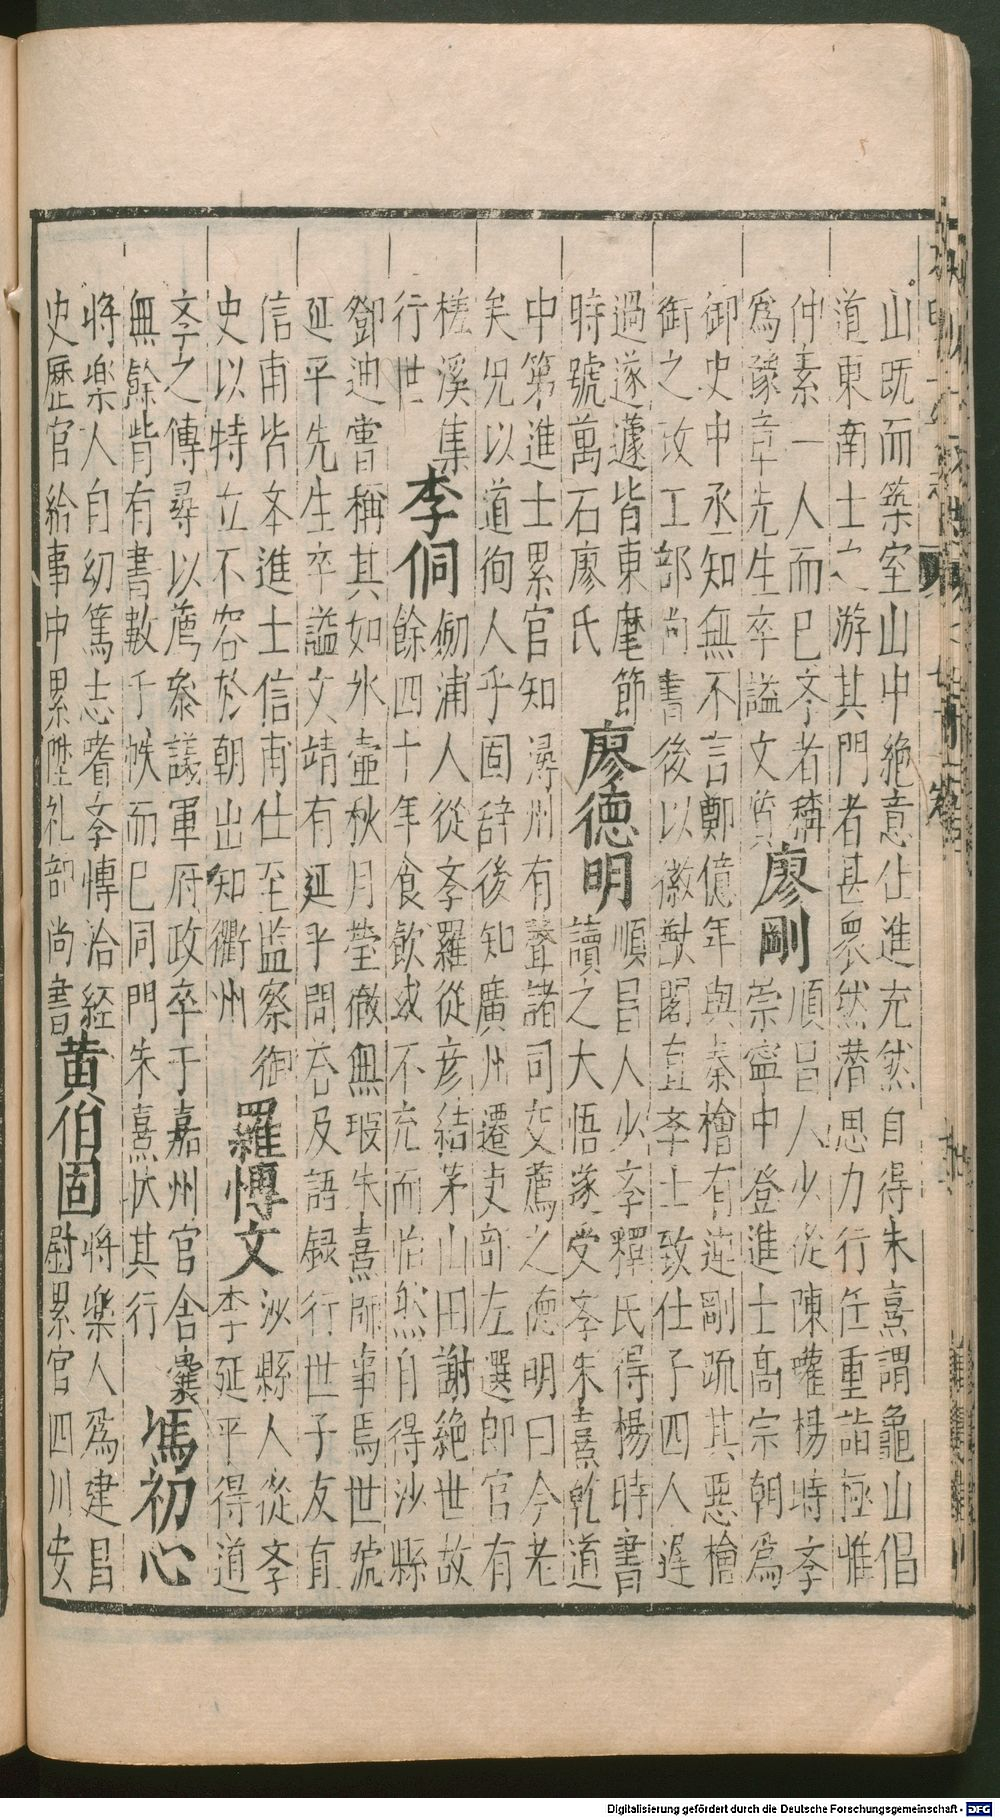 山既而築室山中絶意仕進充然自得朱熹謂龜山倡
道東南士之游其門者甚衆然潜思力行任重詣極惟
仲素一人而已学者稱
爲豫章先生卒謚文質
廖剛
順昌人少從陳瓘楊時学
崇寧中登進士高宗朝爲
御史中丞知無不言鄭億年與秦檜有連剛疏其惡檜
銜之改工部尚書後以徽猷閣直学士致仕子四人遲
過遂蘧皆東麾節
時號萬石廖氏
廖德明
順昌人少学釋氏得楊時書
讀之大悟遂受学朱熹乾道
中第進士累官知潯州有聲諸司交薦之德明曰今老
矣况以道徇人乎固辞後知廣州遷吏部左選郎官有
槎溪集
行世
李侗
劒浦人從学羅從彦結茅山田謝絶世故
餘四十年食飲或不充而怡然自得沙縣
鄧迪嘗稱其如氷壷秋月瑩徹無瑕朱熹師事焉世號
延平先生卒謚文靖有延平問荅及語録行世子友直
信甫皆夲進士信甫仕至監察御
史以特立不容於朝出知衢州
羅愽文
沙縣人從学
李延平得道
学之傳尋以薦叅議軍府政卒于嘉州官舍橐
無餘眥有書數千帙而已同門朱熹状其行
馮初心
将樂人自幼篤志耆学愽洽經
史歴官給事中累陞礼部尚書
黄伯固
将樂人爲建昌
尉累官四川安
Digitalisierung gefördert durch die Deutsche Forschungsgemeinschaft - DFG